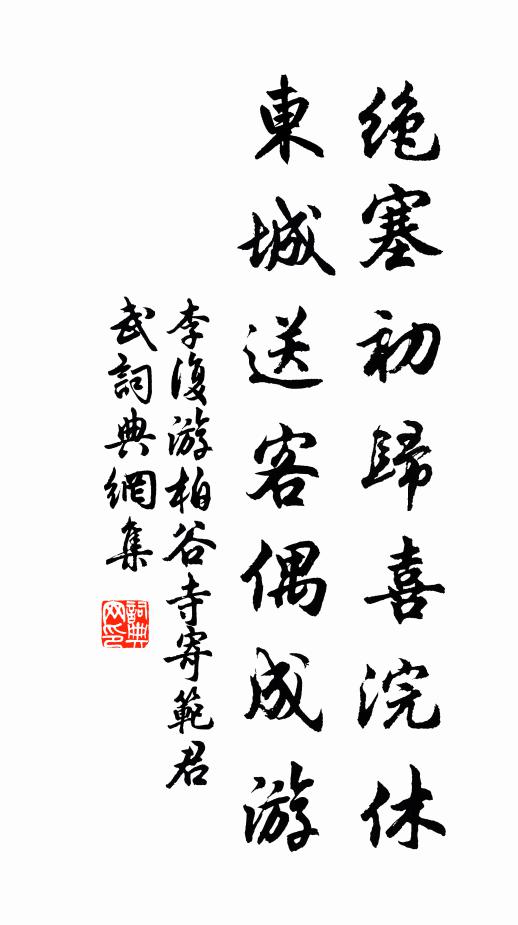 絶塞初歸喜浣休
東城送客偶成游
李復游柏谷寺寄範君
武詞典網集
詞典网印